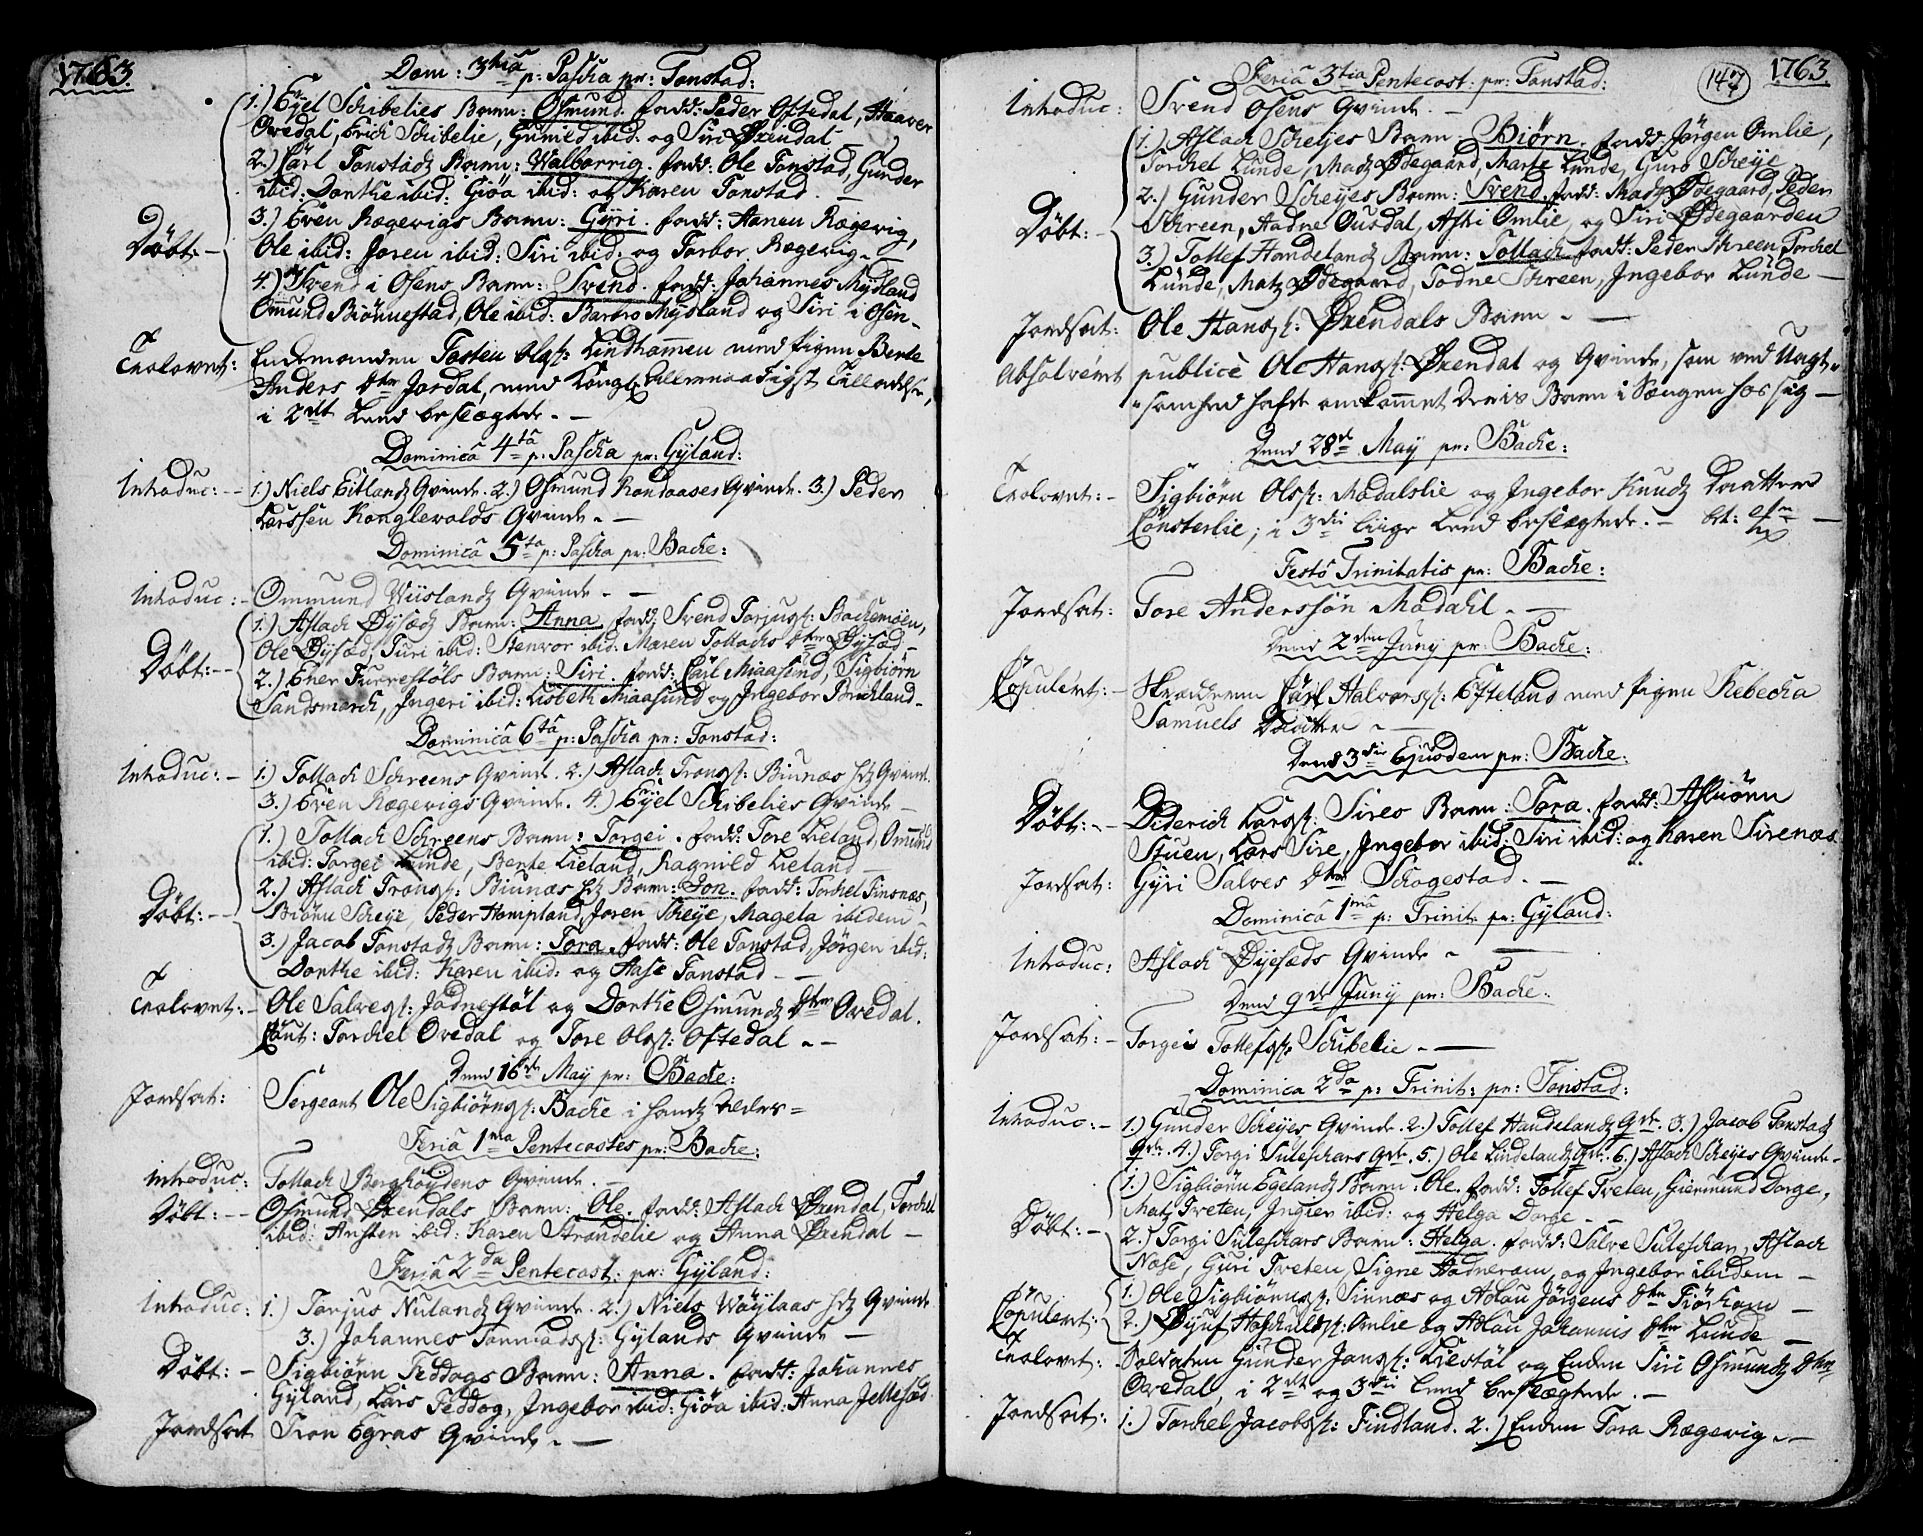 1763.
Dom: 3tia p: Pascha pr: Tonstad:
Døbt: –
1.) Eyel Schibelies Barn: Osmund. fadd: Peder Oftedal, Haaver
Ovedal, Erich Schibelie, Gunild ibid: og Siri Øxendal –
2.) Carl Tonstadz Barn: Walborrig. fadd: Ole Tonstad, Gunder
ibid: Dorthe ibid: Giøa ibid: og Karen Tonstad. –
3.) Even Rægevigs Barn: Gyri. fadd: Hanen Rægevig,
Ole ibid: Joren ibid: Siri ibid: og Torbor Rægevig. –
4.) Svend i Osens Barn: Svend. fadd: Johannes Mydland
Omund Biønnestad, Ole ibid: Barbro Mydland og Siri i Osen –
Trolovet: Enkemanden Tosten Olss: Lindhommen med Pigen Berte
Anders Dtr Jordal, med Kongl: Allernaadigst Tilladelse,
i 2det Leed beslægtede. –
Dominica 4ta p: Pascha pr: Gyland:
Introduc: – 1.) Niels Eitlandz Qvinde. 2.) Osmund Rondaases Qvinde. 3.) Peder
Larssen Konglevolds Qvinde. –
Dominica 5ta p: Pascha pr: Backe:
Introduc: – Ommund Wiislandz Qvinde. –
Døbt: –
1.) Aslach Øysædz Barn: Anna. fadd: Svend Torjuss: Backemoen,
Ole Øysæd, Turi ibid: Stenvor ibid: Maren Tollachs Dtr Øysæd –
2.) Ener Furrestøls Barn: Siri. fadd: Carl Miaasund, Sigbiørn
Sandsmarch, Ingeri ibid: Lisbeth Miaasund og Ingebor Birchland –
Dominica 6ta p: Pascha pr: Tonstad:
Introduc: – 1.) Tollach Schreens Qvinde. 2.) Aslach Tronss: Biunæs hs Qvinde.
3.) Even Rægevigs Qvinde. 4.) Eyel Schibelies Qvinde –
Døbt: –
1.) Tollach Schreens Barn: Torgei. fadd: Tore Lieland, Omund
ibid: Torgei Lunde, Berte Lieland, Ragnild Lieland –
2.) Aslach Tronss: Biunæs hs Barn: Jon. fadd: Torchel Sinsnæs,
Biørn Scheye, Peder Hompland, Joren Scheye, Magela ibidem –
3.) Jacob Tonstadz Barn: Tora. fadd: Ole Tonstad, Jørgen ibid:
Dorthe ibid: Karen ibid: og Aase Tonstad –
Trolovet: – Ole Salvess: Jødnestøl og Dorthe Osmundz Dtr Ovedal.
Caut: Torchel Ovedal og Tore Olss: Oftedal. –
Dend 16de May pr: Backe:
Jordsat: Sergeant Ole Sigbiørnss: Backe i hans Alder =
Feria 1ma Pentecostes pr: Backe:
Introduc: Tollach Berghøydens Qvinde. –
Døbt: – Osmund Øxendals Barn: Ole. fadd: Aslach Øxendal, Torchel
ibid: Austen ibid: Karen Strandelie og Anna Øxendal –
Feria 2da Pentecost: pr: Gyland:
Introduc: 1.) Torjus Nulandz Qvinde. 2.) Niels Wøylaas hs Qvinde.
3.) Johannes Tonniadss: Gylands Qvinde –
Døbt: – Sigbiørn Feddogs Barn: Anna. fadd: Johannes
Gyland, Lars Feddog, Ingebor ibid: Giøa ibid: Anna Jellesæd
Jordsat Tron Egras Qvinde. –
147 1763
Feria 3tia Pentecost: pr: Tonstad:
Introduc: Svend Osens Qvinde. –
Døbt: –
1.) Aslach Scheyes Barn: Biørn. fadd: Jørgen Omlie,
Torchel Lunde, Madz Ødegaard, Marte Lunde, Guro Scheye –
2.) Gunder Scheyes Barn: Svend. fadd: Matz Ødegaard, Peder
Schreen, Hadne Ousdal, Astri Omlie, og Siri Ødegaarden
3.) Tollef Handelandz Barn: Tollach. fadd: Peder Schreen, Torchel
Lunde, Matz Ødegaard, Todne Schreen, Ingebor Lunde –
Jordsat: Ole Hanss: Øxendals Barn. –
Absolveret publicè Ole Hanss: Øxendal og Qvinde, som ved Uagt-
somhed hafde omkommet deris Barn i Sængen hos sig –
Dend 28de May pr: Backe:
Trolovet: – Sigbiørn Olss: Mødalslie og Ingebor Knudz Daatter
Lonsterlie, i 3die liige Leed beslægtede. –
Festo Trinitatis pr: Backe:
Jordsat: Tore Anderssøn Mødahl. –
Dend 2den Juny pr: Backe:
Copuleret: – Skræderen Carl Halvorss: Efteland med Pigen Rebecka
Samuels Daatter. –
Dend 3die Ejusdem pr: Backe:
Døbt: – Diderich Larss: Sires Barn: Tora. fadd: Asbiørn
Stuen, Lars Sire, Ingebor ibid: Siri ibid: og Karen Sirenæs
Jordsat: Gyri Salves Dtr Schogestad. –
Dominica 1ma p: Trinit: pr: Gyland:
Introduc: Aslach Øyesæds Qvinde –
Dend 9de Juny pr: Backe:
Jordsat: – Torgei Tollefss: Schibelie. –
Dominica 2da p: Trinit: pr: Tonstad:
Introduc: – 1.) Gunder Scheyes Qvinde. 2.) Tollef Handelandz Qde. 3.) Jacob Tonstadz
Qde. 4.) Torgi Suleschars Qde. 5.) Ole Lindelandz Qde. 6.) Aslach Scheyes Qvinde –
Døbt: –
1.) Sigbiørn Egelandz Barn: Ole. fadd: Tollef Treten, Giermund Dorge,
Matz Treten, Ingier ibid: og Helga Dorge –
2.) Torgi Suleschars Barn: Helga. fadd: Salve Suleschar, Aslach
Næse, Guri Treten, Signe Hadneram, og Ingebor ibidem –
Copuleret: – 1.) Ole Sigbiørnss: Sinnæs og Adlau Jørgens Dtr Tiørhom –
2.) Øyuf Haschuldss: Omlie og Adlau Johannis Dtr Lunde –
Trolovet: Soldaten Gunder Janss: Liestøl og Enken Siri Osmundz Dtr
Ovedal, i 2det og 3die Leed beslægtede. –
Jordsat: 1.) Torchel Jacobss: Findland. 2.) Enken Tora Rægevig. –